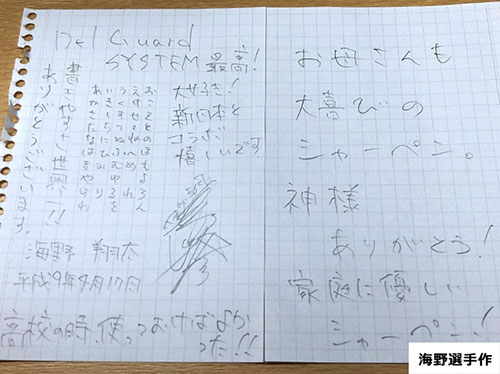 Del Guard
SYSTEM 最高!
大好き!
新日本と
コラボ
嬉しいです
おこそとのほもよろん
えけせてねへめれ
うくすつぬふむゆるを
いきしちにひみり
あかさたなはまやらわ
書きやすさ世界一!!
ありがとうございます。
海野 翔太
平成9年4月17日
高校の時、使っておけばよか
った!!
お母さんも
大喜びの
シャーペン。
神様
ありがとう!
家庭に優しい
シャーペン!
海野選手作